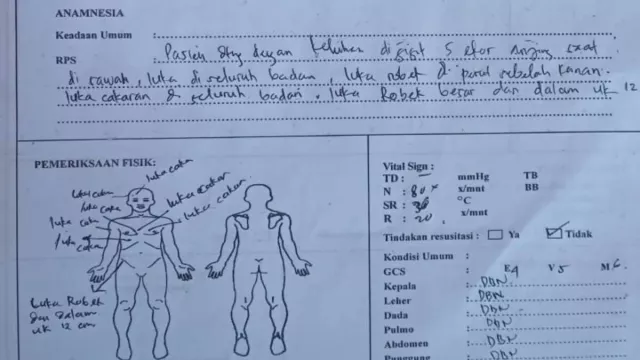 ANAMNESIA
Keadaan Umum :
RPS : Pasien dtg dengan keluhan digigit 5 ekor anjing saat
di sawah, luka di seluruh badan, luka robek di perut sebelah kanan.
luka cakaran di seluruh badan. luka Robek besar dan dalam uk 12
PEMERIKSAAN FISIK:
luka cakar
luka cakar
luka cakaran
luka cakar
luka cakaran
luka cakar
luka cakar
Luka Robek
dan dalam
uk 12 cm
Vital Sign :
TD : – mmHg TB
N : 80x x/mnt BB
SR : 36 °C
R : 20 x/mnt
Tindakan resusitasi : Ya Tidak
Kondisi Umum :
GCS : E4 V5 M6
Kepala : DBN
Leher : DBN
Dada : DBN
Pulmo : DBN
Abdomen : DBN
Punggung : DBN